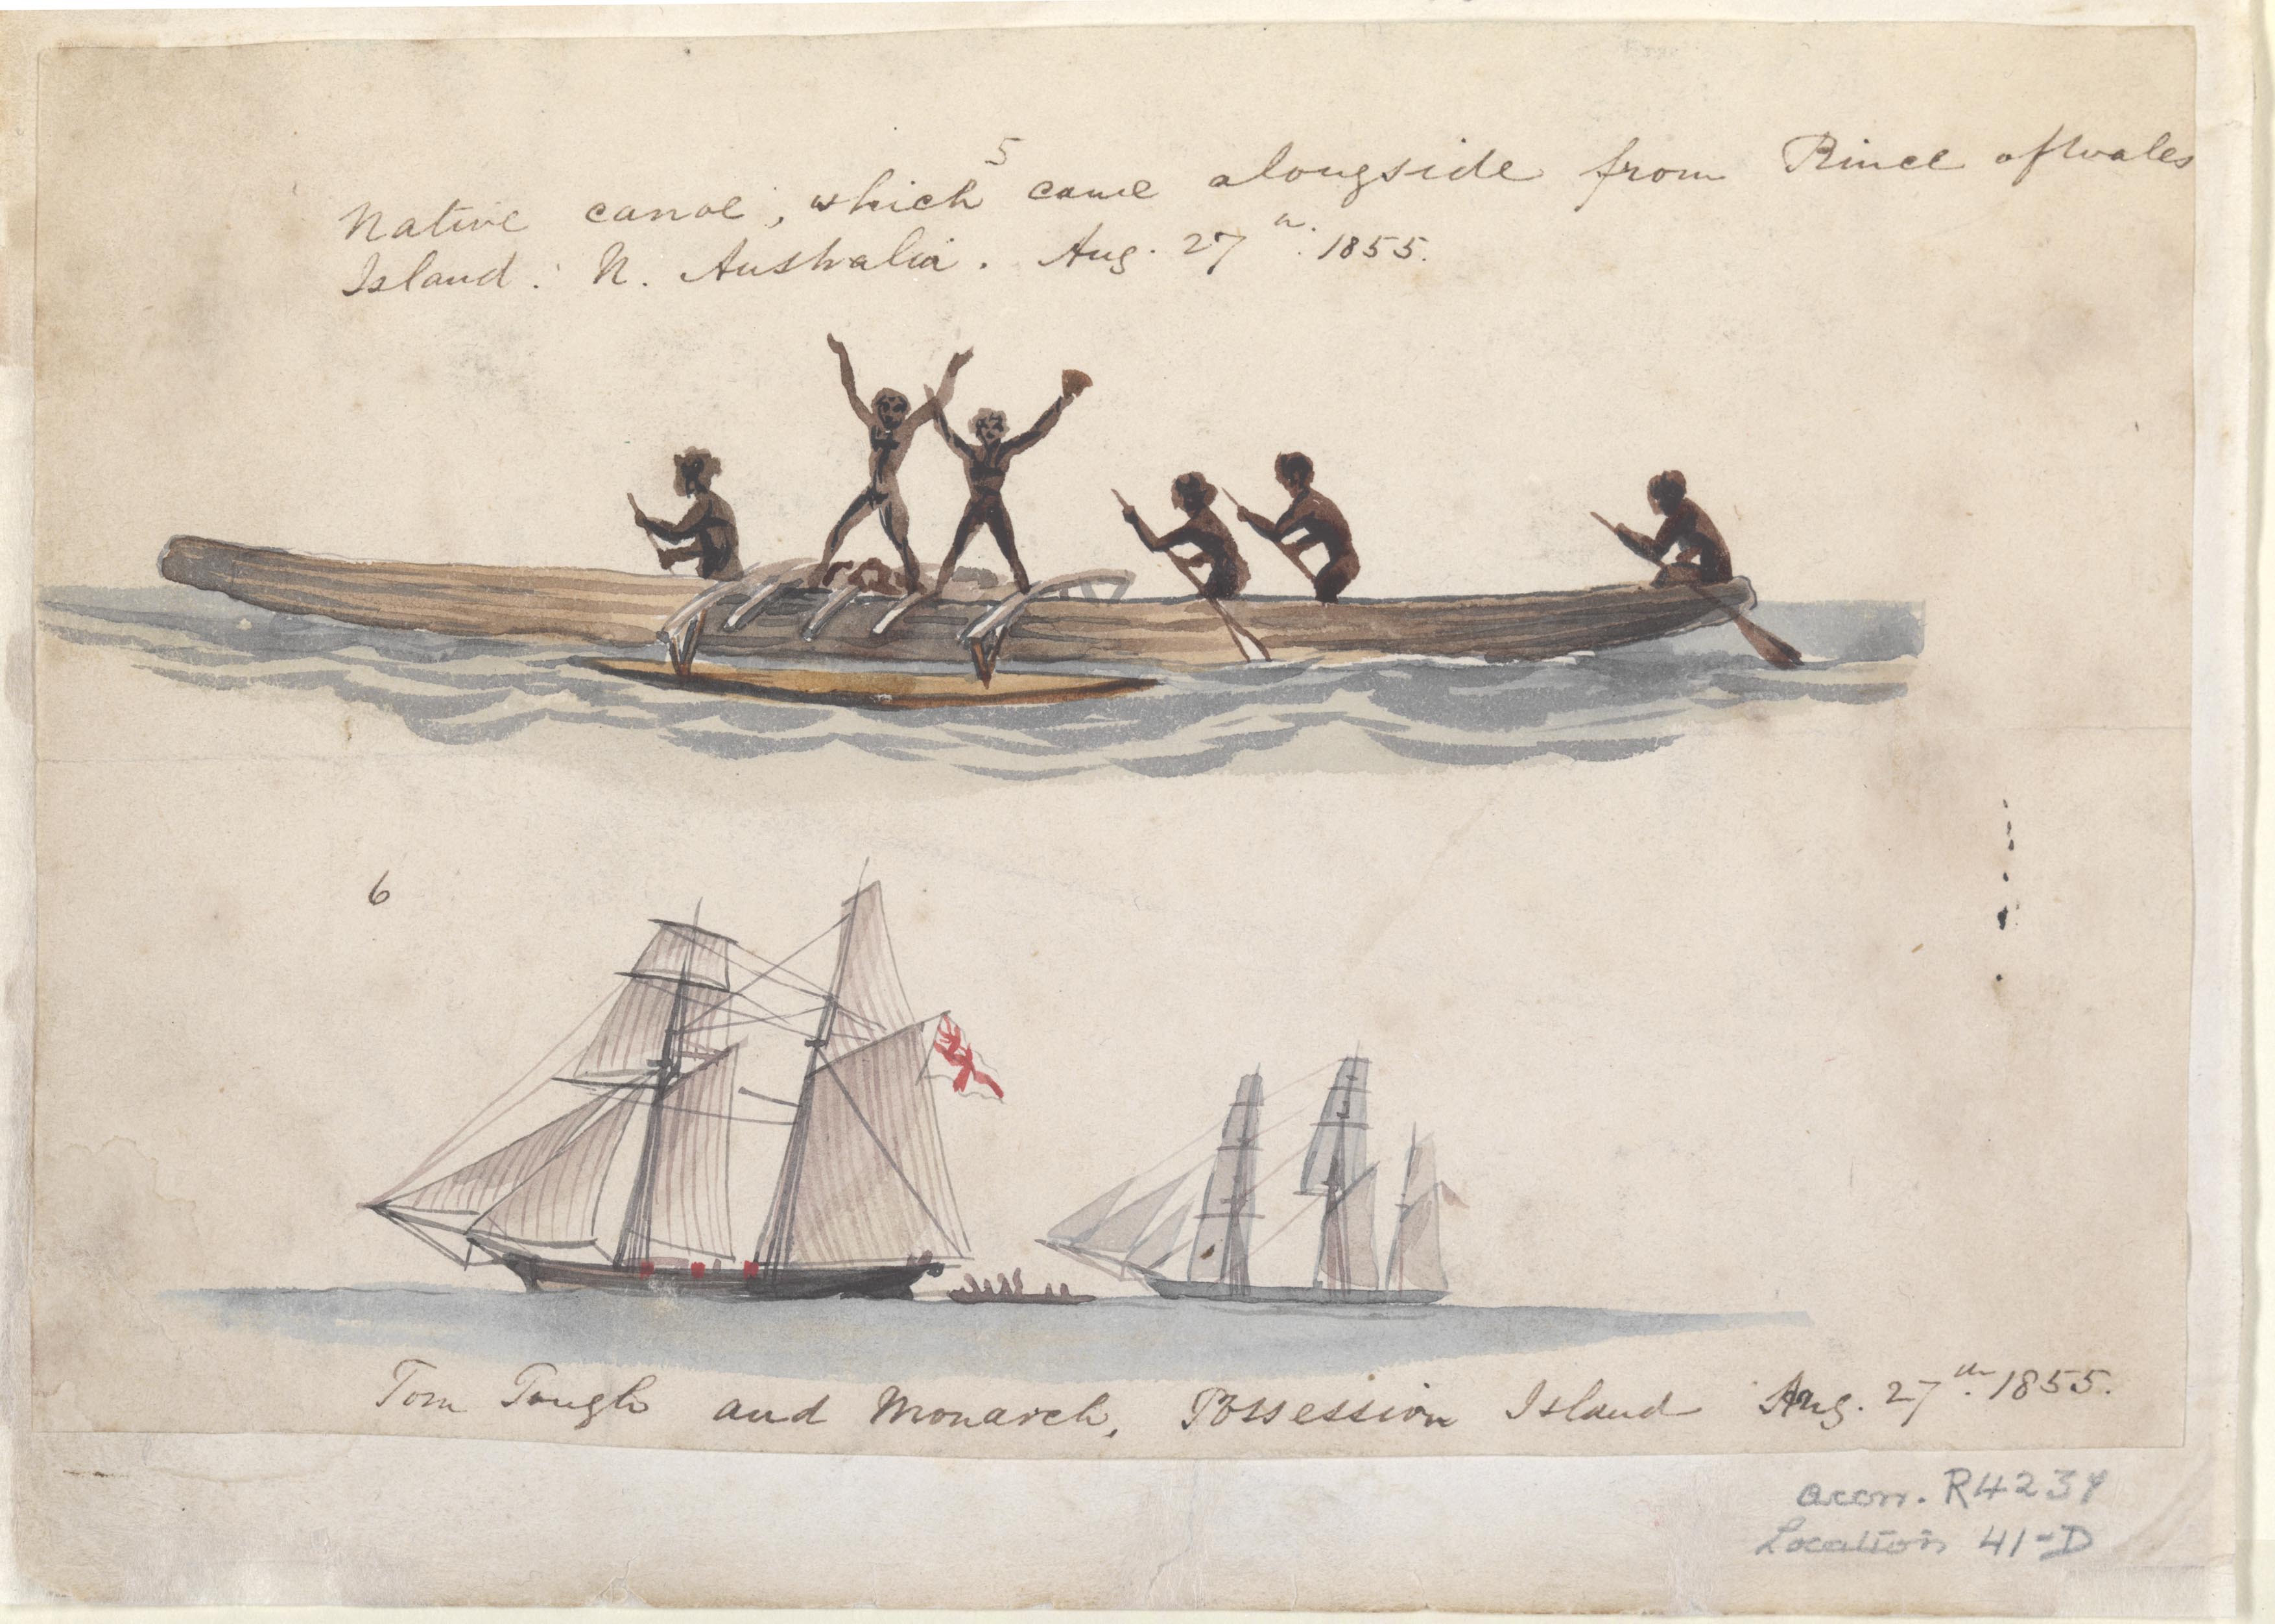 5
Native canoe, which came alongside from Prince of Wales
Island. N. Australia. Aug. 27th. 1855.
6
Tom Tough and Monarch, Possession Island Aug. 27th. 1855.
accn. R4234
Location 41-D